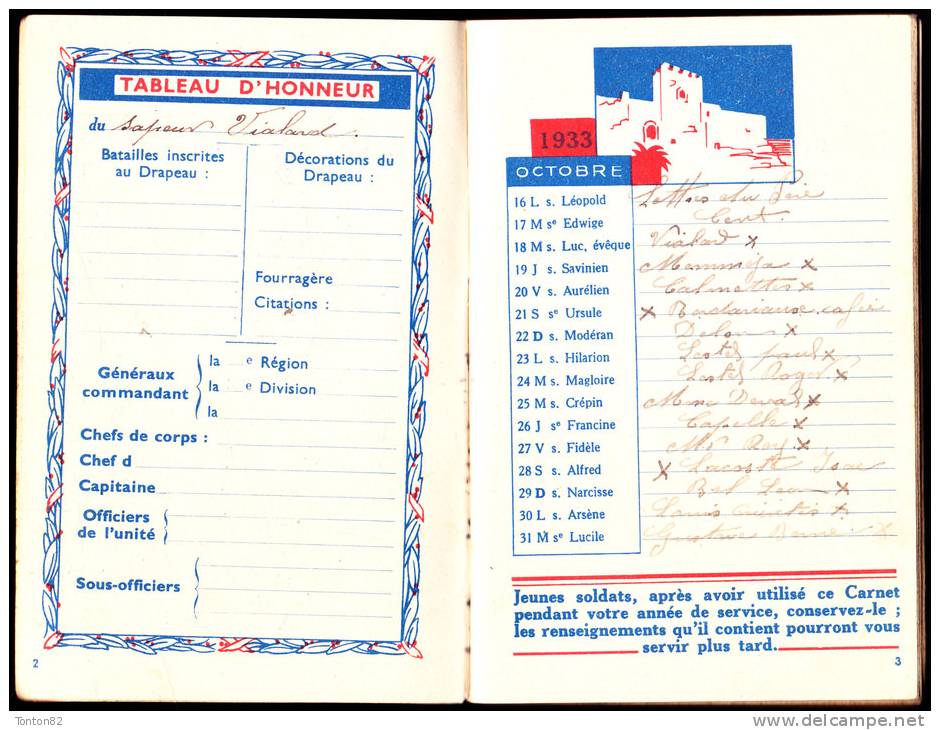 TABLEAU D'HONNEUR
du sapeur Vialard.
Batailles inscrites
au Drapeau :
Décorations du
Drapeau :
Fourragère
Citations :
Généraux
commandant
la e Région
la e Division
la
Chefs de corps :
Chef d
Capitaine
Officiers
de l'unité
Sous-officiers
2
1933
OCTOBRE
16 L s. Léopold Lettres du
17 M sᵉ Edwige
18 M s. Luc, évêque Vialard x
19 J s. Savinien x
20 V s. Aurélien Calmettes x
21 S sᵉ Ursule x
22 D s. Modéran Delon x
23 L s. Hilarion paul x
24 M s. Magloire Roger x
25 M s. Crépin x
26 J sᵉ Francine Capelle x
27 V s. Fidèle Roy x
28 S s. Alfred x Lacoste
29 D s. Narcisse Bel Leon x
30 L s. Arsène Louis x
31 M sᵉ Lucile Gustave x
Jeunes soldats, après avoir utilisé ce Carnet
pendant votre année de service, conservez-le ;
les renseignements qu'il contient pourront vous
servir plus tard.
3
Tonton82
www.delcampe.net